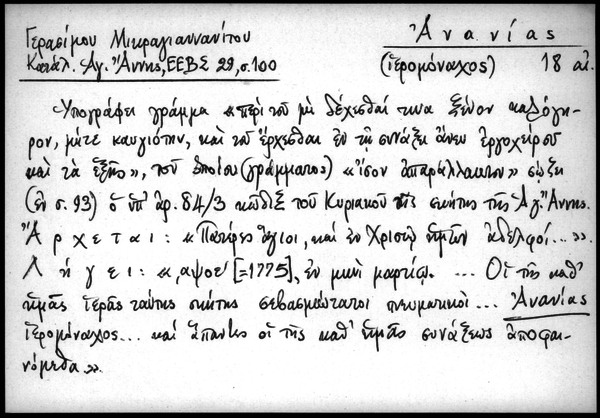 Γερασίμου Μικραγιαννανίτου
Κατάλ. Ἁγ. Ἄννης, ΕΕΒΣ 29, σ. 100
Ἀνανίας
(ἱερομόναχος) 18 αἰ.
Ὑπογράφει γράμμα «περὶ τοῦ μὴ δέχεσθαί τινα ξένον καλόγη-
ρον, μήτε καυγιότην, καὶ τοῦ ἔρχεσθαι ἐν τῇ συνάξει ἄνευ ἐργοχείρου
καὶ τὰ ἑξῆς», τοῦ ὁποίου (γράμματος) «ἴσον ἀπαράλλακτον» σῴζει
(ἐν σ. 93) ὁ ὑπ' ἀρ. 84/3 κῶδιξ τοῦ Κυριακοῦ τῆς σκήτης τῆς Ἁγ. Ἄννης.
Ἄρχεται: «Πατέρες ἅγιοι, καὶ ἐν Χριστῷ ἡμῶν ἀδελφοί...».
Λήγει: «͵αψοε´ [=1775], ἐν μηνὶ μαρτίῳ. ... Οἱ τῆς καθ'
ἡμᾶς ἱερᾶς ταύτης σκήτης σεβασμιώτατοι πνευματικοὶ... Ἀνανίας
ἱερομόναχος... καὶ ἅπαντες οἱ τῆς καθ' ἡμᾶς συνάξεως ἀποφαι-
νόμεθα».